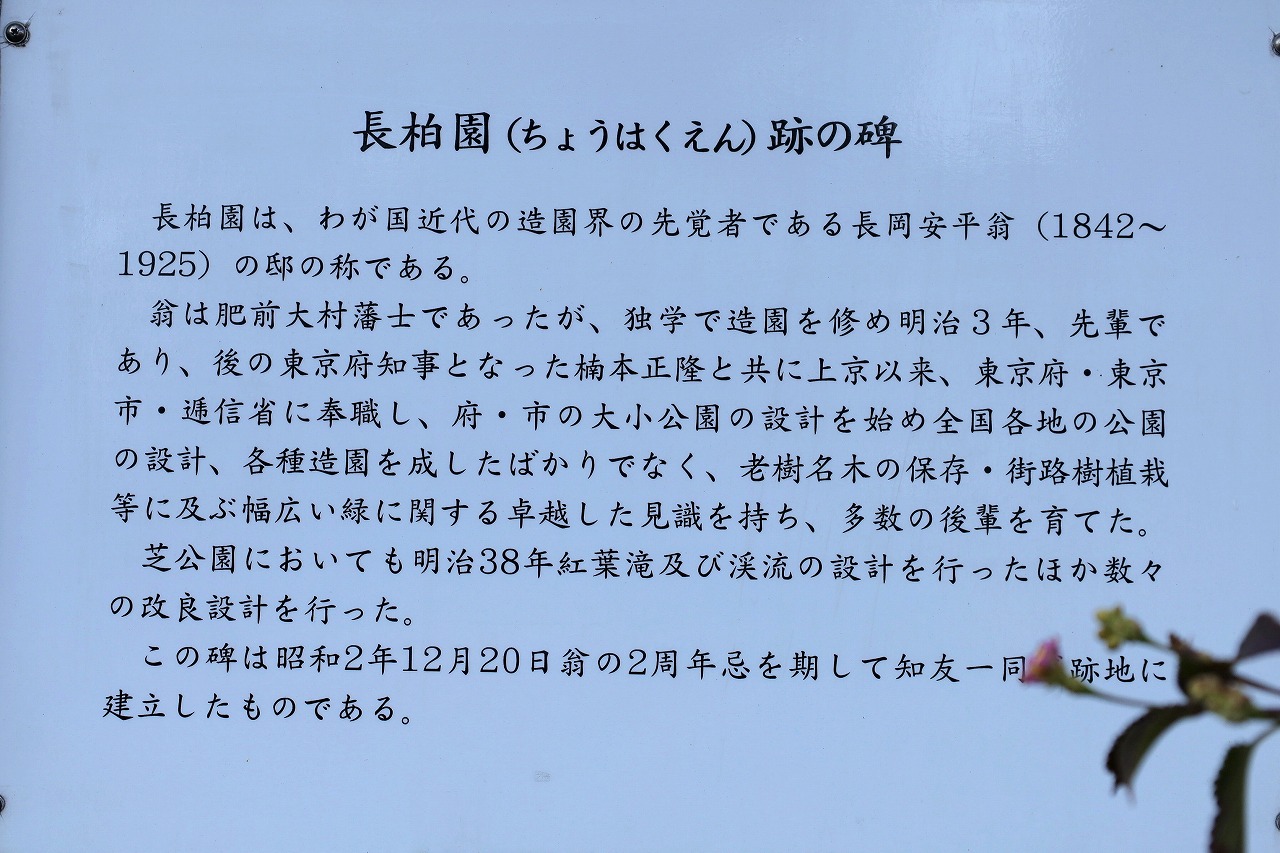 長柏園(ちょうはくえん)跡の碑
長柏園は、わが国近代の造園界の先覚者である長岡安平翁(1842〜
1925)の邸の称である。
翁は肥前大村藩士であったが、独学で造園を修め明治3年、先輩で
あり、後の東京府知事となった楠本正隆と共に上京以来、東京府・東京
市・逓信省に奉職し、府・市の大小公園の設計を始め全国各地の公園
の設計、各種造園を成したばかりでなく、老樹名木の保存・街路樹植栽
等に及ぶ幅広い緑に関する卓越した見識を持ち、多数の後輩を育てた。
芝公園においても明治38年紅葉滝及び渓流の設計を行ったほか数々
の改良設計を行った。
この碑は昭和2年12月20日翁の2周年忌を期して知友一同 跡地に
建立したものである。